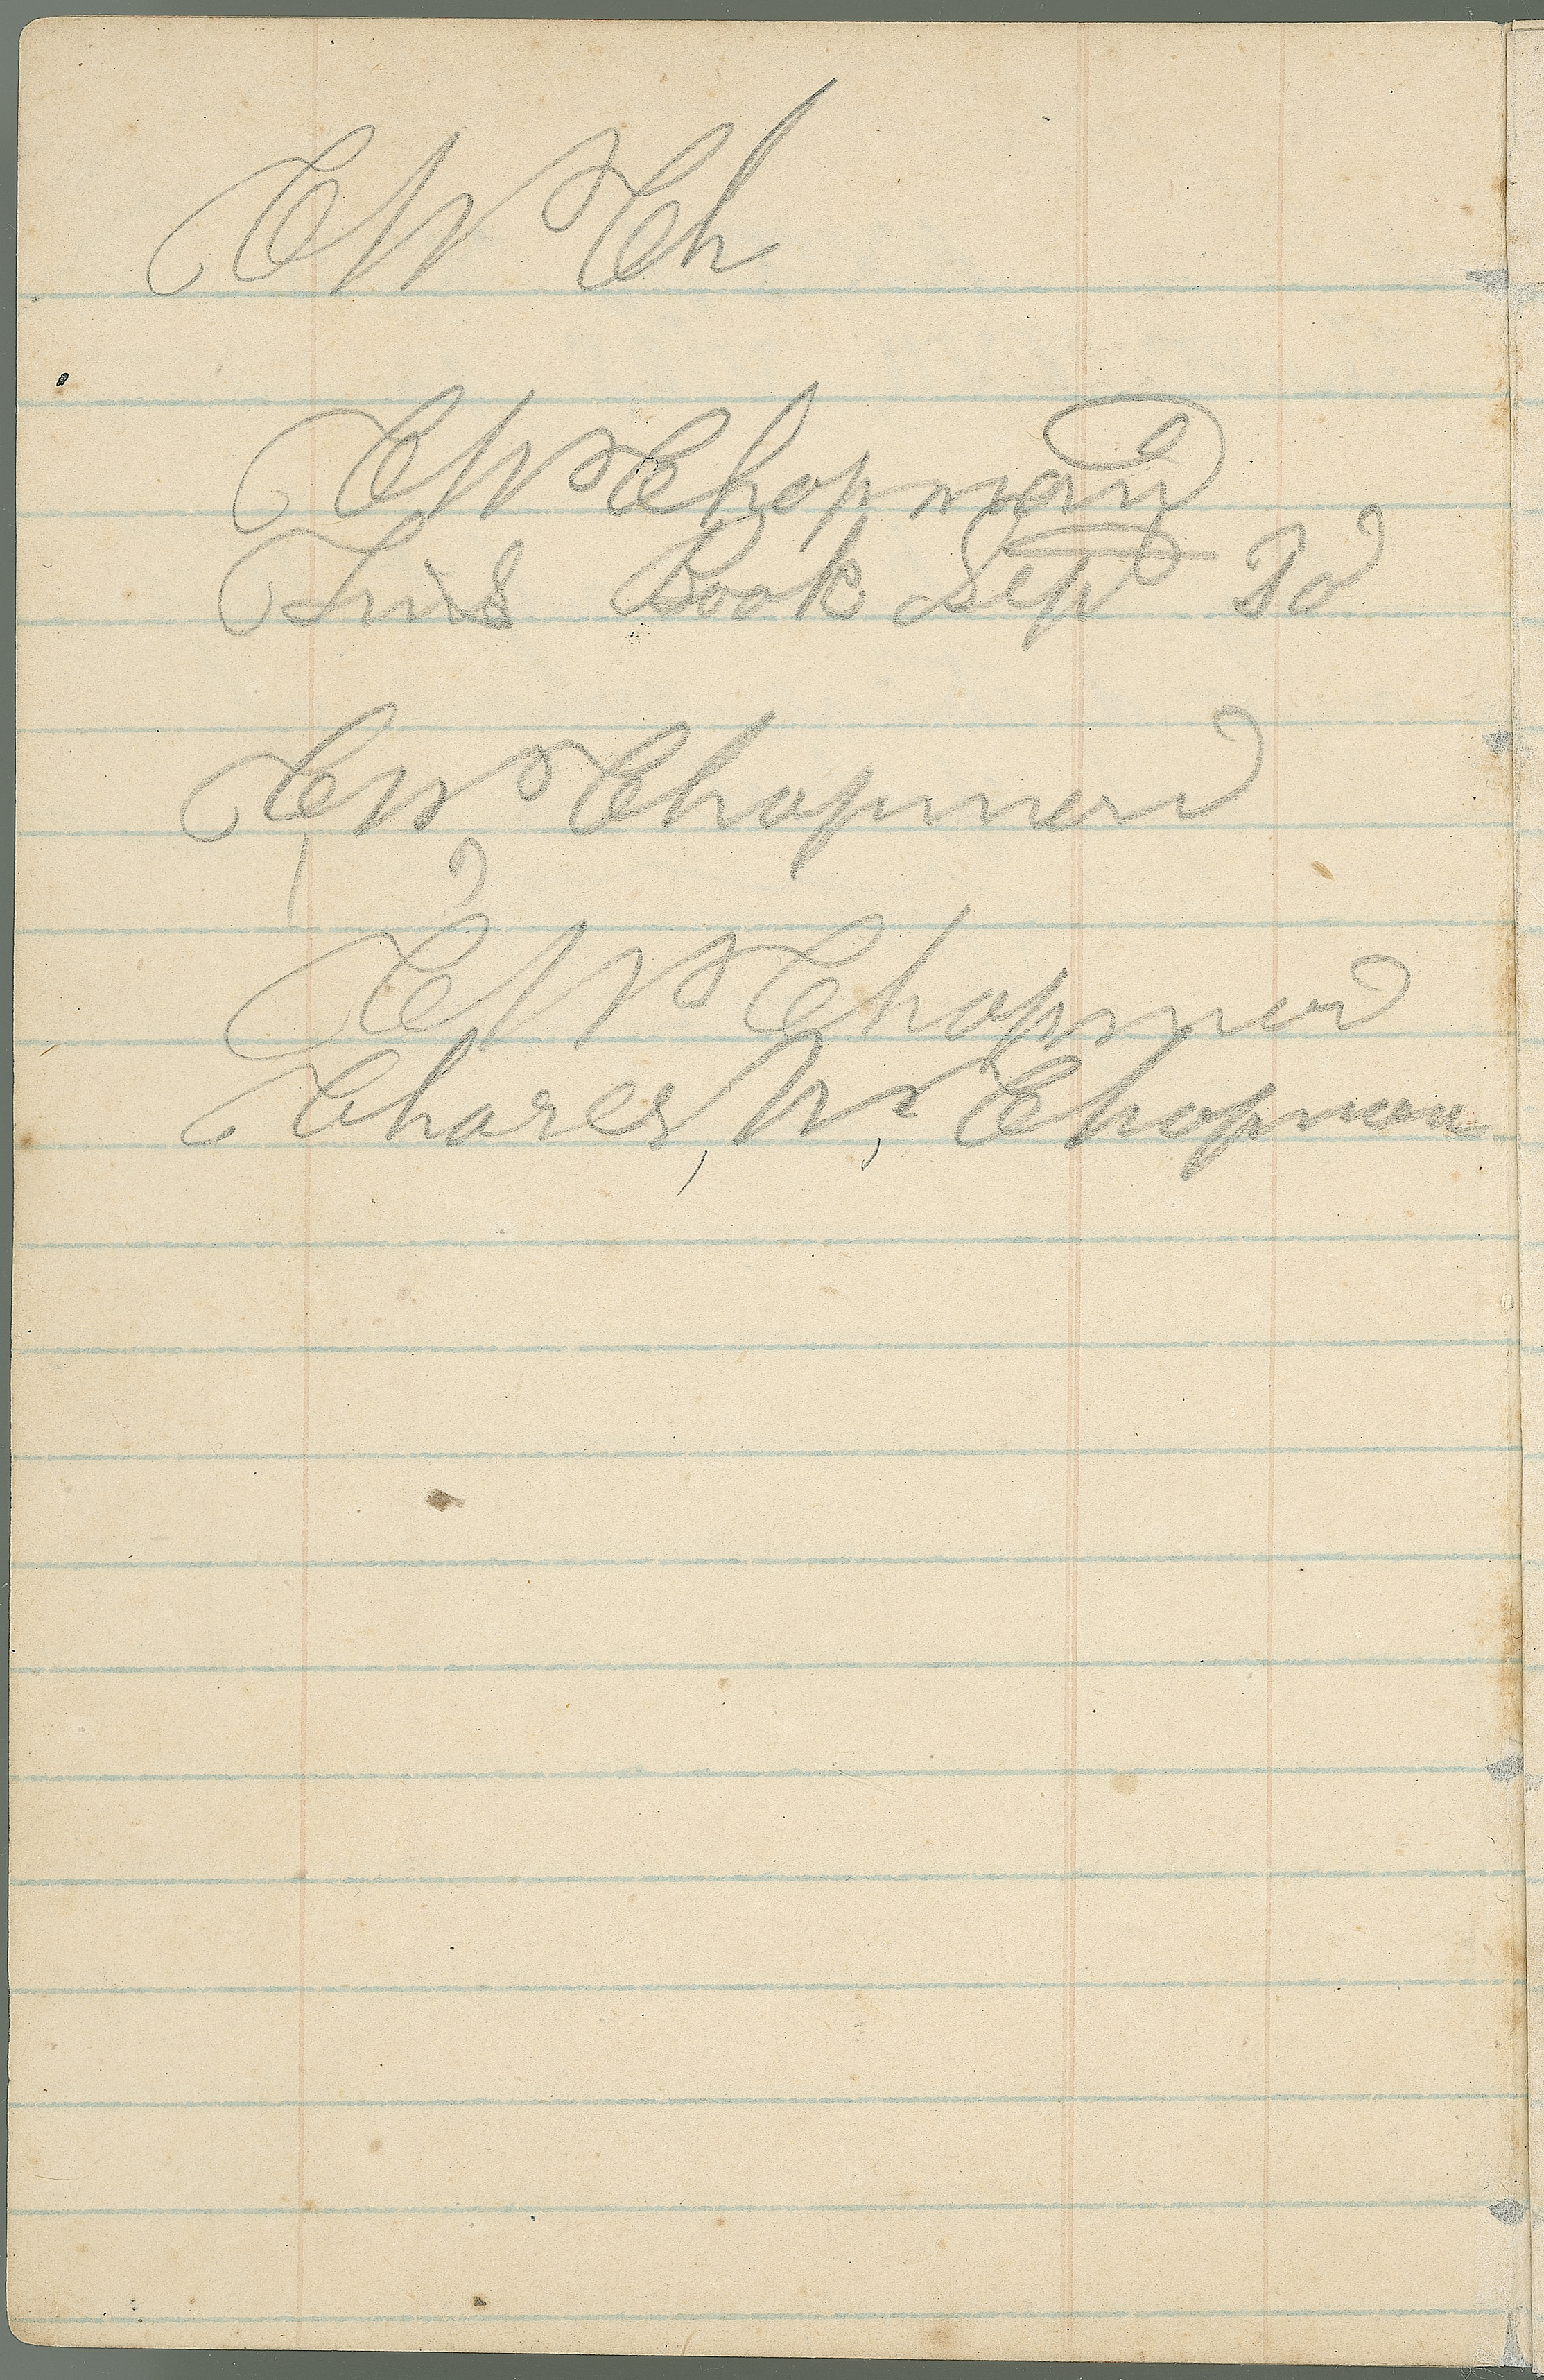 C W Ch
C W Chapman
This Book Sep
C W Chapman
C W Chapman
Chares, W, Chapman